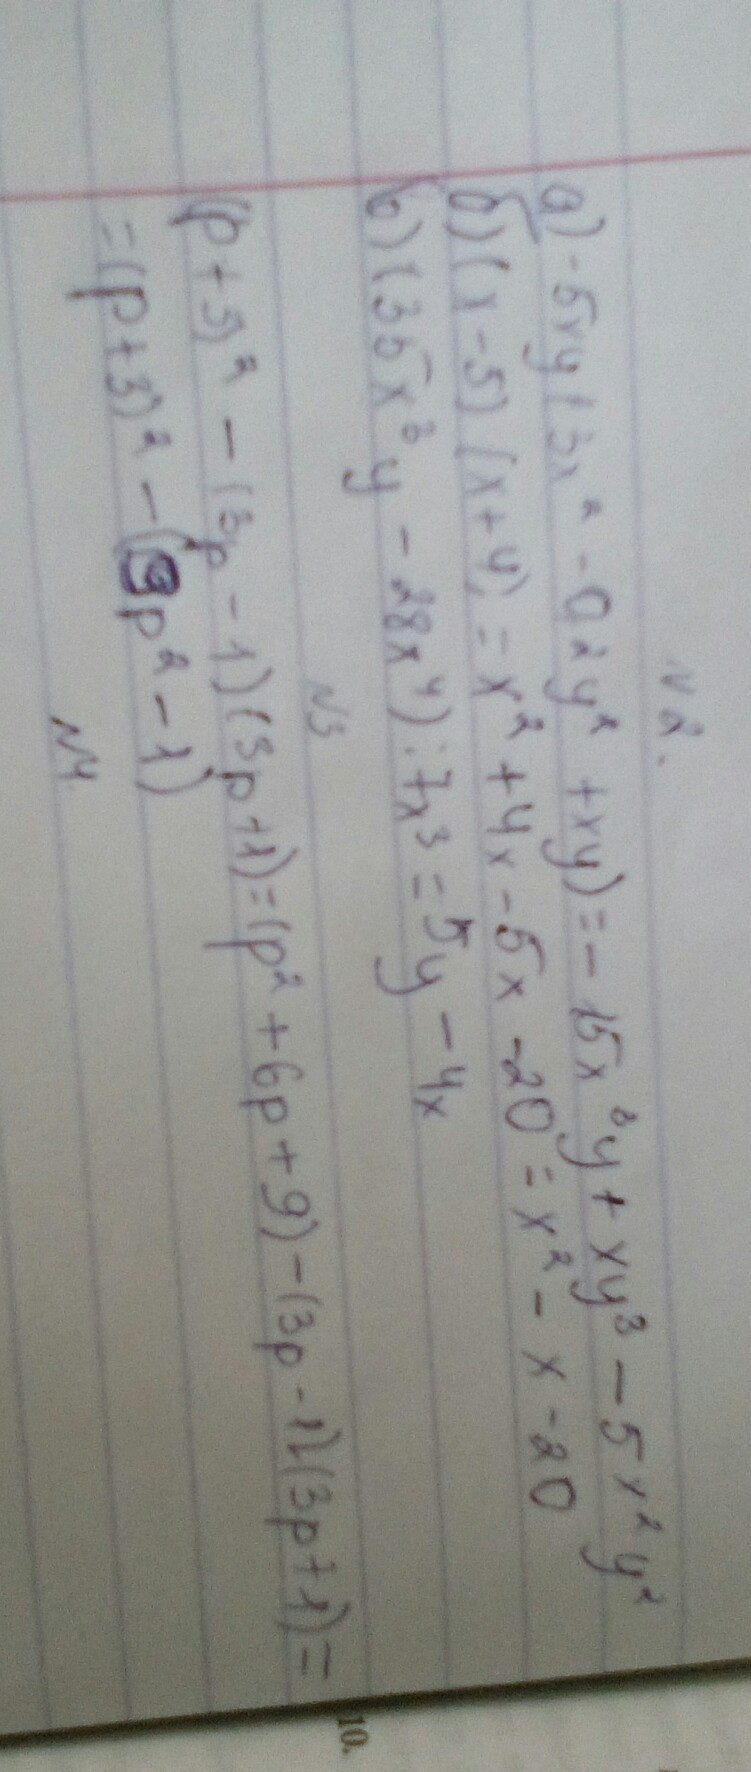 N 2.
а) -5xy(3x² - 0,2y² + xy) = - 15x³y + xy³ - 5x²y²
б) (x - 5)(x + 4) = x² + 4x - 5x - 20 = x² - x - 20
в) (35x³y - 28x⁴) : 7x³ = 5y - 4x
N3
(p + 3)² - (3p - 1)(3p + 1) = (p² + 6p + 9) - (3p - 1)(3p + 1) =
= (p + 3)² - (9p² - 1)
N4.
10.